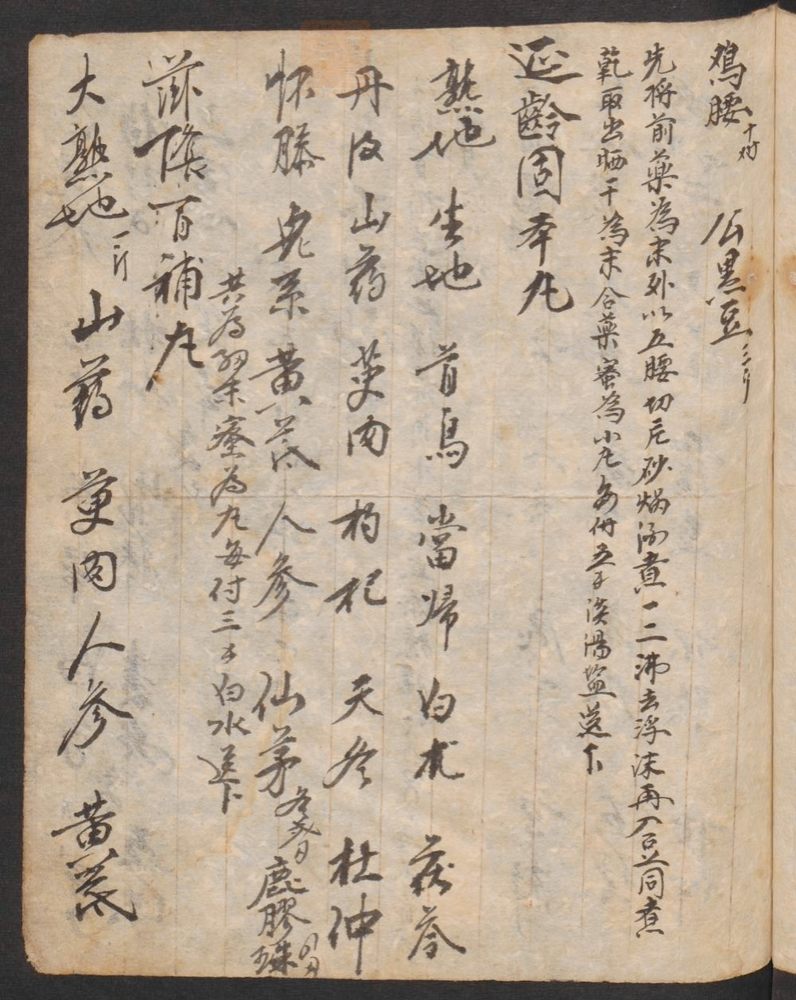 鴉腰十対 公黒豆三斤
先将前薬為末外以五腰切片砂焗湯煮一二沸去浮沫再入豆同煮
乾取出晒干為末合薬蜜為小丸每付五子淡湯盐送下
延齡固本丸
熟地 生地 首烏 當归 白朮 茯苓
丹皮 山葯 萸肉 枸杞 天冬 杜仲
怀膝 兎系 黄芪 人参 仙茅 鹿膠珠
共为細末蜜为丸每付三子白水送下
滋陰百補丸
大熟地一斤 山葯 萸肉 人参 黄芪